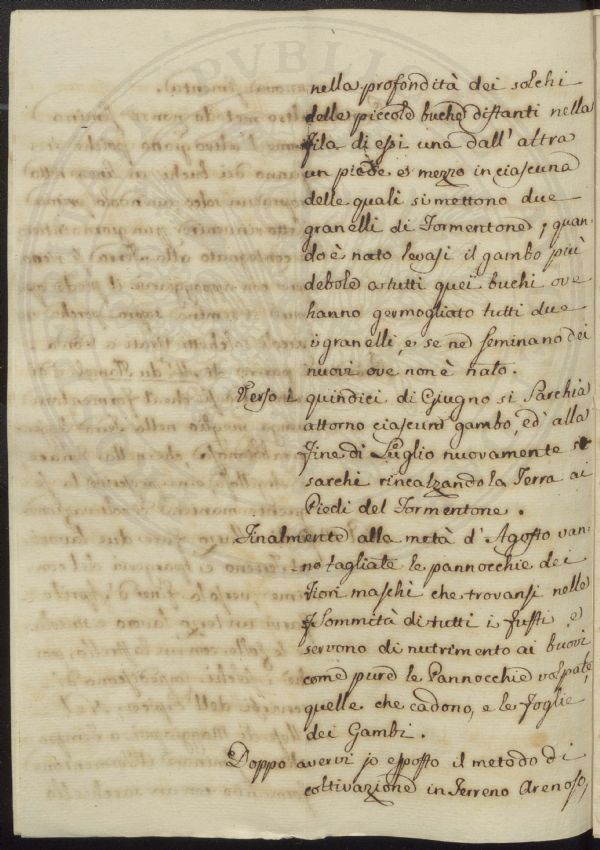 nella profondità dei solchi
delle piccole buche distanti nella
fila di essi una dall' altra
un piede e mezzo in ciascuna
delle quali si mettono due
granelli di Formentone, quan-
do è nato levasi il gambo più
debole a tutti quei buchi ove
hanno germogliato tutti due
i granelli, e se ne seminano dei
nuovi ove non è nato.
Verso i quindici di Giugno si Sarchia
attorno ciascun gambo, ed' alla
fine di Luglio nuovamente si
sarchi rincalzando la Terra ai
Piedi del Formentone.
Finalmente alla metà d' Agosto van-
no tagliate le pannocchie dei
Fiori maschi che trovansi nelle
Sommità di tutti i fusti, e
servono di nutrimento ai buovi
come pure le Pannocchie volpate,
quelle che cadono, e le foglie
dei Gambi.
Doppo avervi jo esposto il metodo di
coltivazione in Terreno Arenoso,